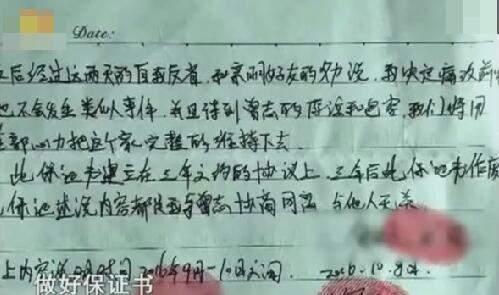 Date:
后经过这两天的自我反省,和亲朋好友的劝说,我决定痛改前
也不会发生类似事件,并且得到曾志的原谅和包容,我们将用
全部心力把这个家完整的维持下去
此保证书建立在三年义务的协议上,三年后此保证书作废
保证书述说内容都是我与曾志协商同意 与他人无关
上内容说的时间2016年9月-10月之间. 2016.10.8日
做好保证书